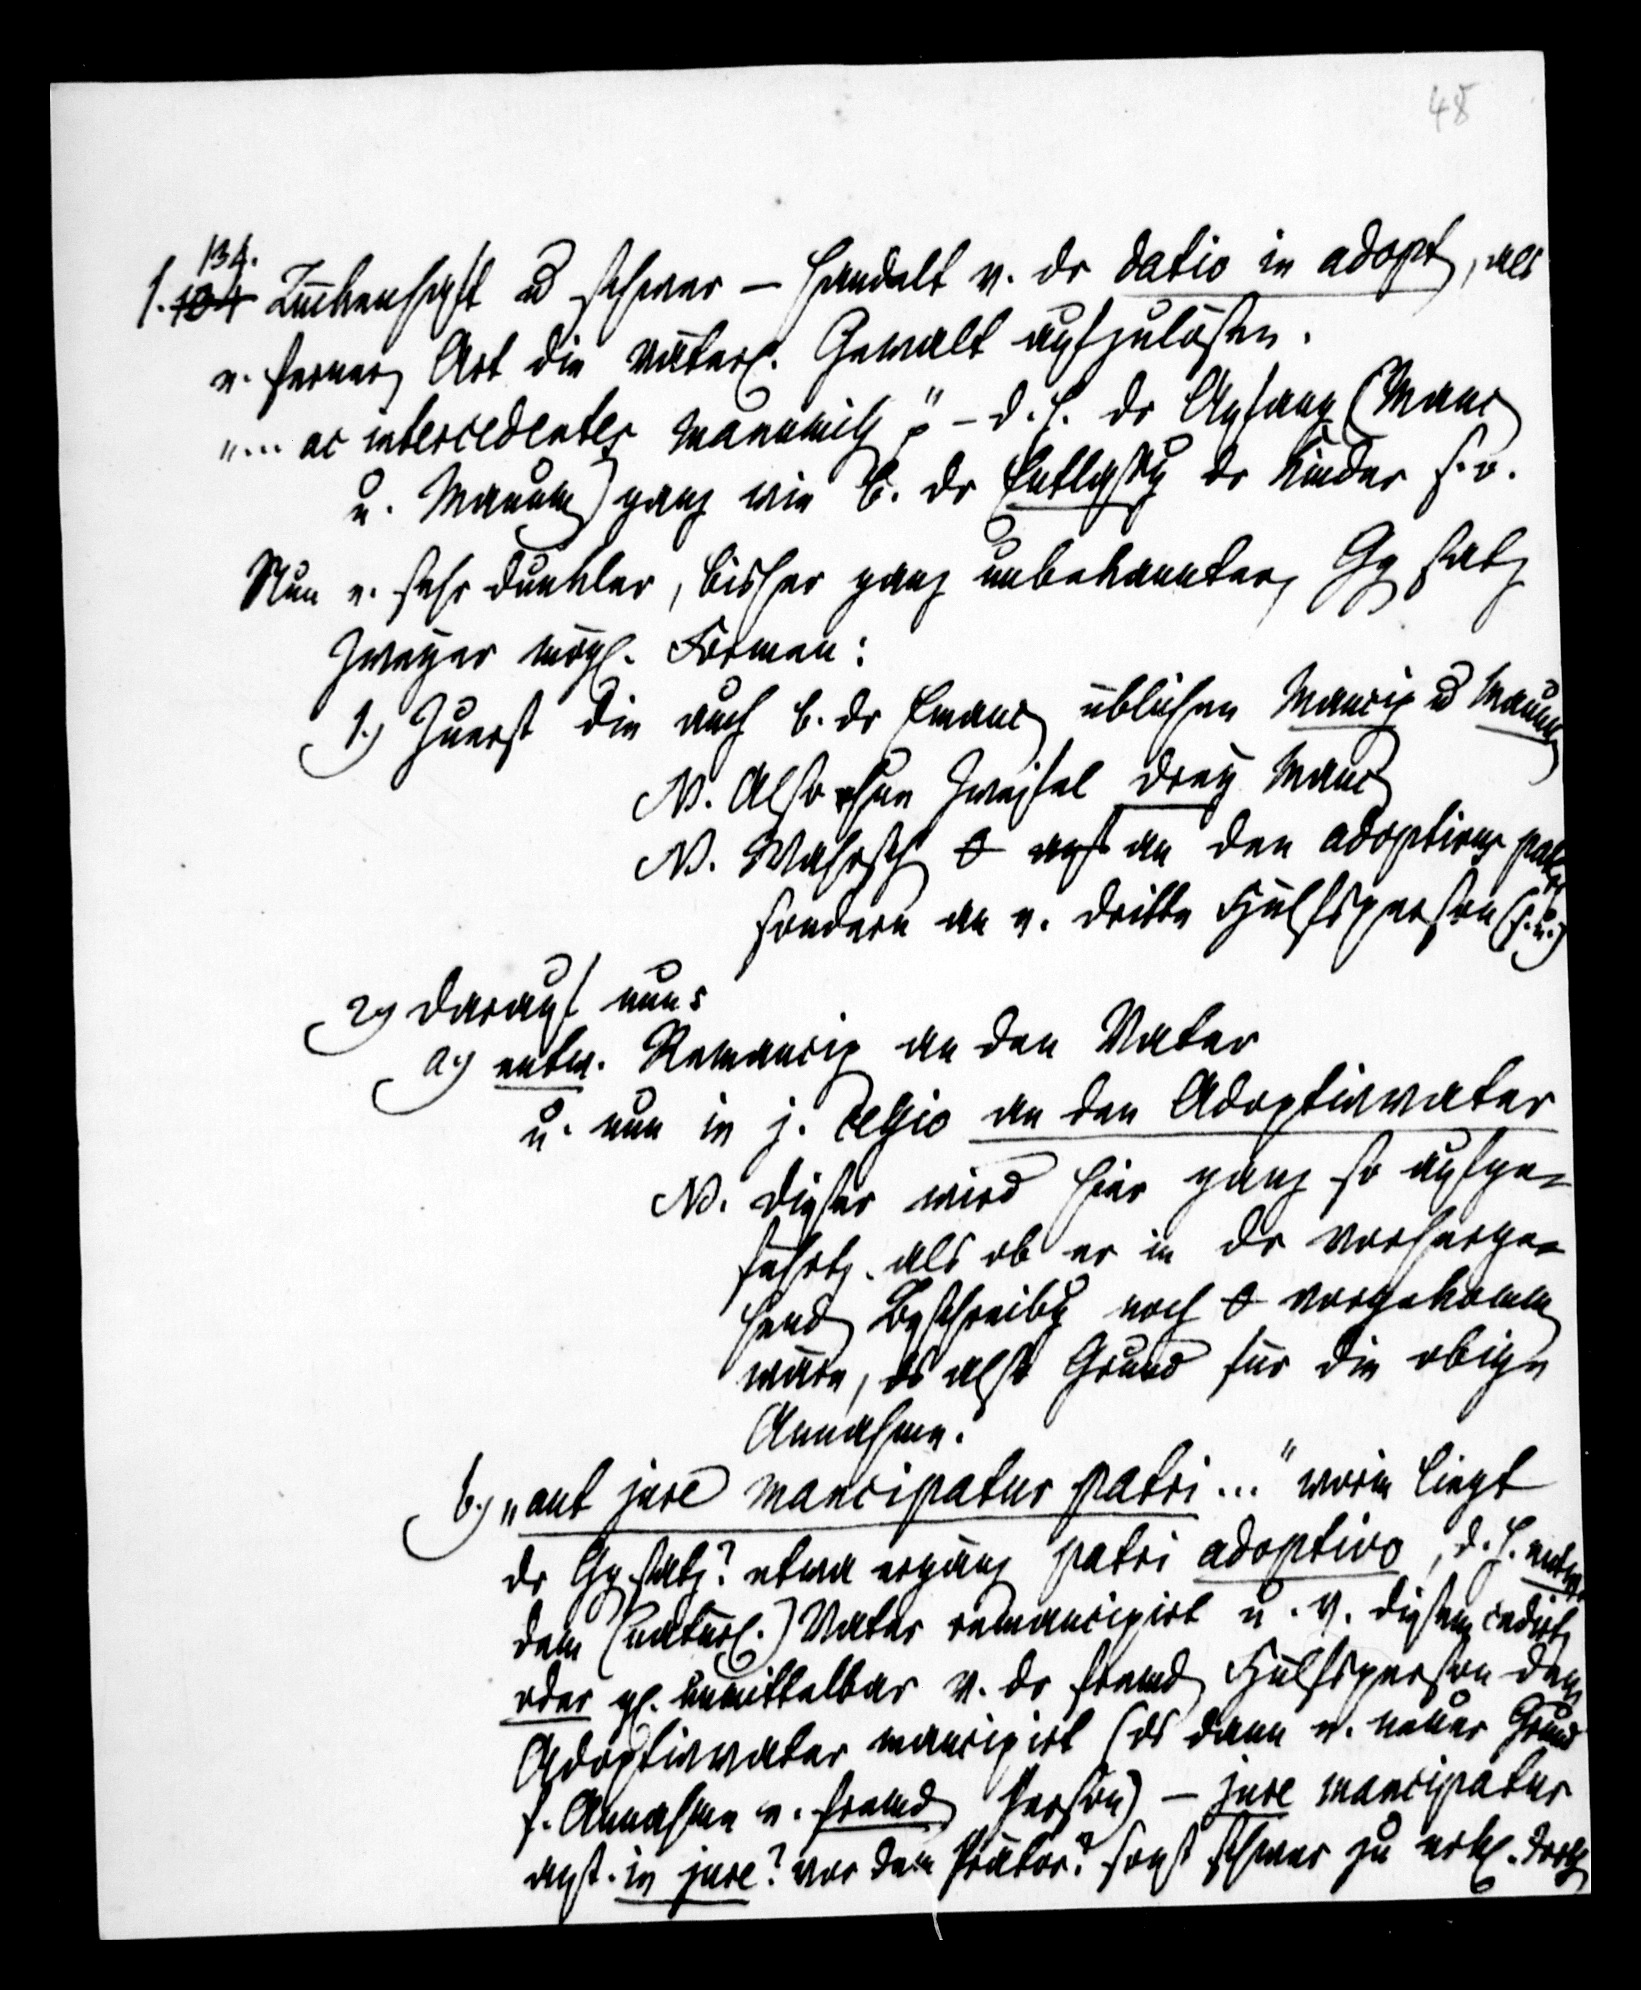 48
134.
§. 134 Lückenhaft u schwer – handelt v. dr datio in adopt, als
e. ferner Art die väterl. Gewalt aufzulösen.
„... ac intercedentes manumiss" – d. h. dr Anfang (Manc
u. Manum) ganz wie b. dr Entlassg dr Kinder s. o.
Nun e. sehr dunkler, bisher ganz unbekannter Ggsatz
zweyer mögl. Formen:
1.) Zuerst die auch b. dr Emanc üblichen Mancip u Manum
N. Also ohne Zweifel drey Manc
N. Wahrsch 0 an den adoptivus pater
sondern an e. dritte Hülfsperson (s. u.)
2.) darauf nun:
a.) entw. Remancip an den Vater
u. nun in j. cessio an den Adoptivvater
N. dieser wird hier ganz so aufge-
führt, als ob er in dr vorherge-
hend Beschreibg noch 0 vorgekomm
wäre, ds also Grund für die obige
Annahme.
b.) „aut jure mancipatur patri ..." worin liegt
dr Ggsatz? etwa ergänz patri adoptivo, d. h. entw.
dem (natürl.) Vater remancipirt u. v. diesem cedirt
oder gl. unmittelbar v. dr fremd Hülfsperson dem
Adoptivvater mancipirt (ds dann e. neuer Grund
f. Annahme e. fremd Person) – jure mancipatur
anst. in jure? vor dem Prätor? sonst schwer zu erkl. doch